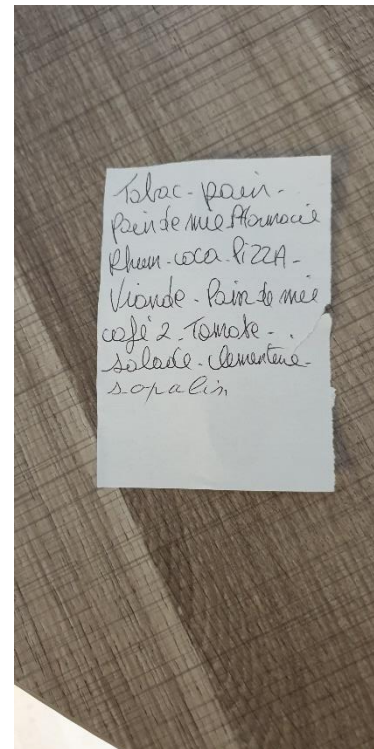 Tabac - pain -
Pain de mie Pharmacie
Rhum - coca - PIZZA -
Viande - Pain de mie
café 2 - Tomate -
salade - clementine -
sopalin